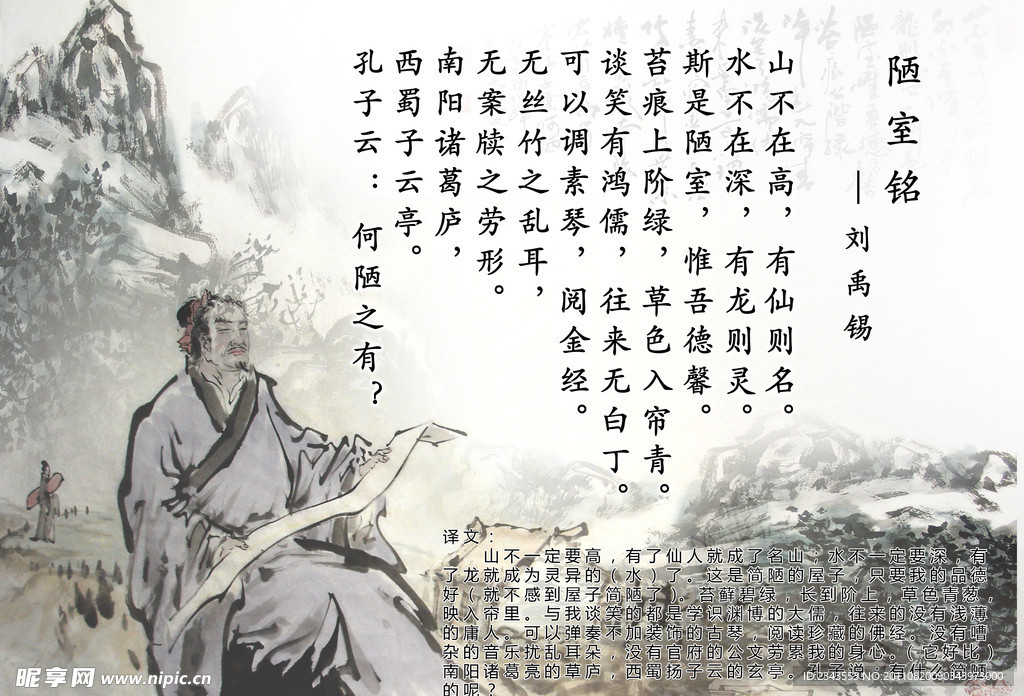 陋室铭
—刘禹锡
山不在高，有仙则名。
水不在深，有龙则灵。
斯是陋室，惟吾德馨。
苔痕上阶绿，草色入帘青。
谈笑有鸿儒，往来无白丁。
可以调素琴，阅金经。
无丝竹之乱耳，
无案牍之劳形。
南阳诸葛庐，
西蜀子云亭。
孔子云：何陋之有？
译文：
山不一定要高，有了仙人就成了名山；水不一定要深，有
了龙就成为灵异的（水）了。这是简陋的屋子，只要我的品德
好（就不感到屋子简陋了）。苔藓碧绿，长到阶上，草色青葱，
映入帘里。与我谈笑的都是学识渊博的大儒，往来的没有浅薄
的庸人。可以弹奏不加装饰的古琴，阅读珍藏的佛经。没有嘈
杂的音乐扰乱耳朵，没有官府的公文劳累我的身心。（它好比）
南阳诸葛亮的草庐，西蜀扬子云的玄亭。孔子说：有什么简陋
的呢？
昵享网 www.nipic.cn